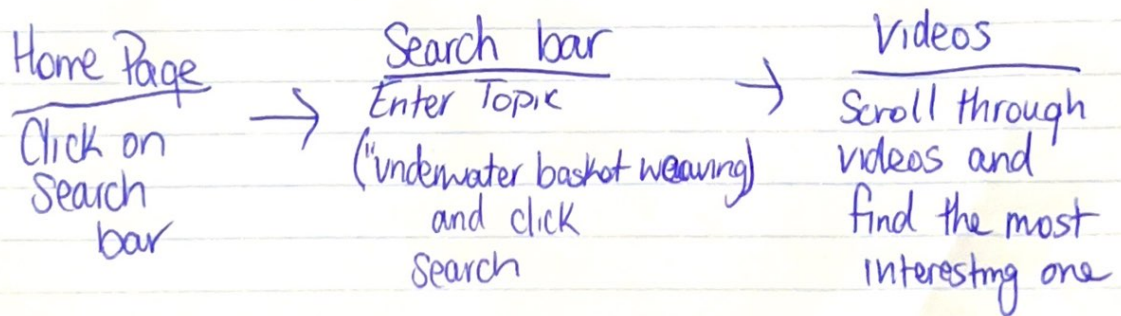 Home Page
Click on
Search
bar
→
Search bar
Enter Topic
("underwater baskot weaving)
and click
Search
→
Videos
Scroll through
videos and
find the most
interesting one